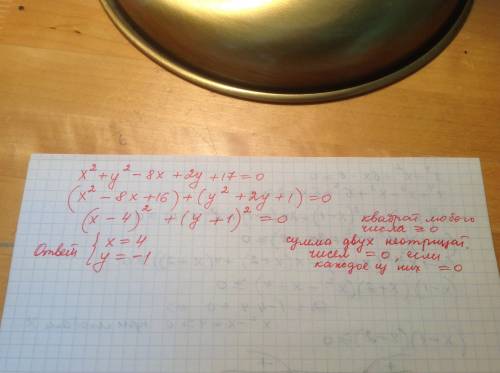 x² + y² - 8x + 2y + 17 = 0
(x² - 8x + 16) + (y² + 2y + 1) = 0
(x - 4)² + (y + 1)² = 0
Ответ { x = 4
y = -1
квадрат любого
числа ≥ 0
сумма двух неотрицат.
чисел = 0, если
каждое из них = 0